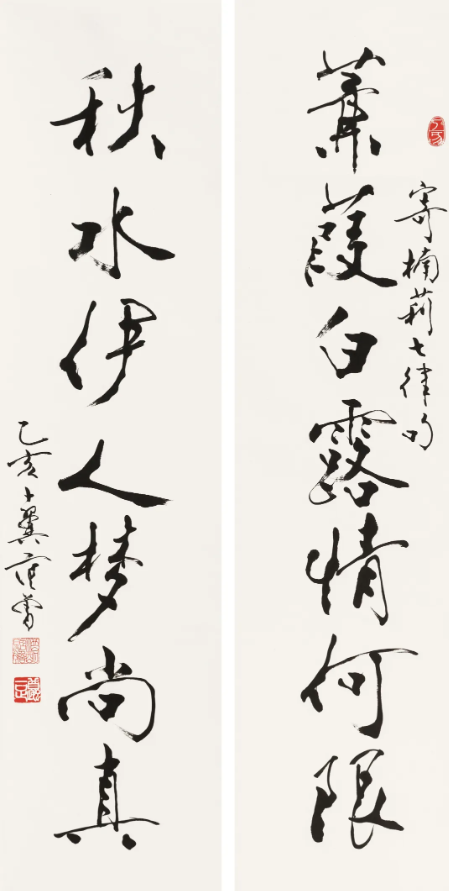 寄楠莉七律句
蒹葭白露情何限
秋水伊人梦尚真
乙亥十翼范曾